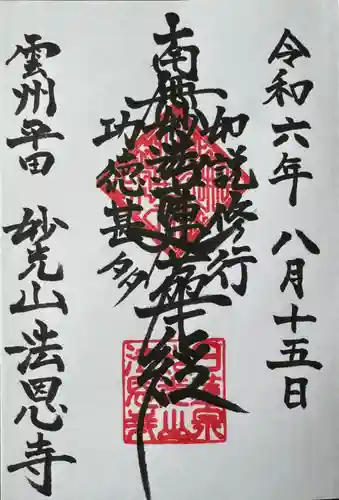 令和六年 八月十五日
如説修行
南無妙法蓮華経
功徳甚多
雲州平田 妙光山 法恩寺